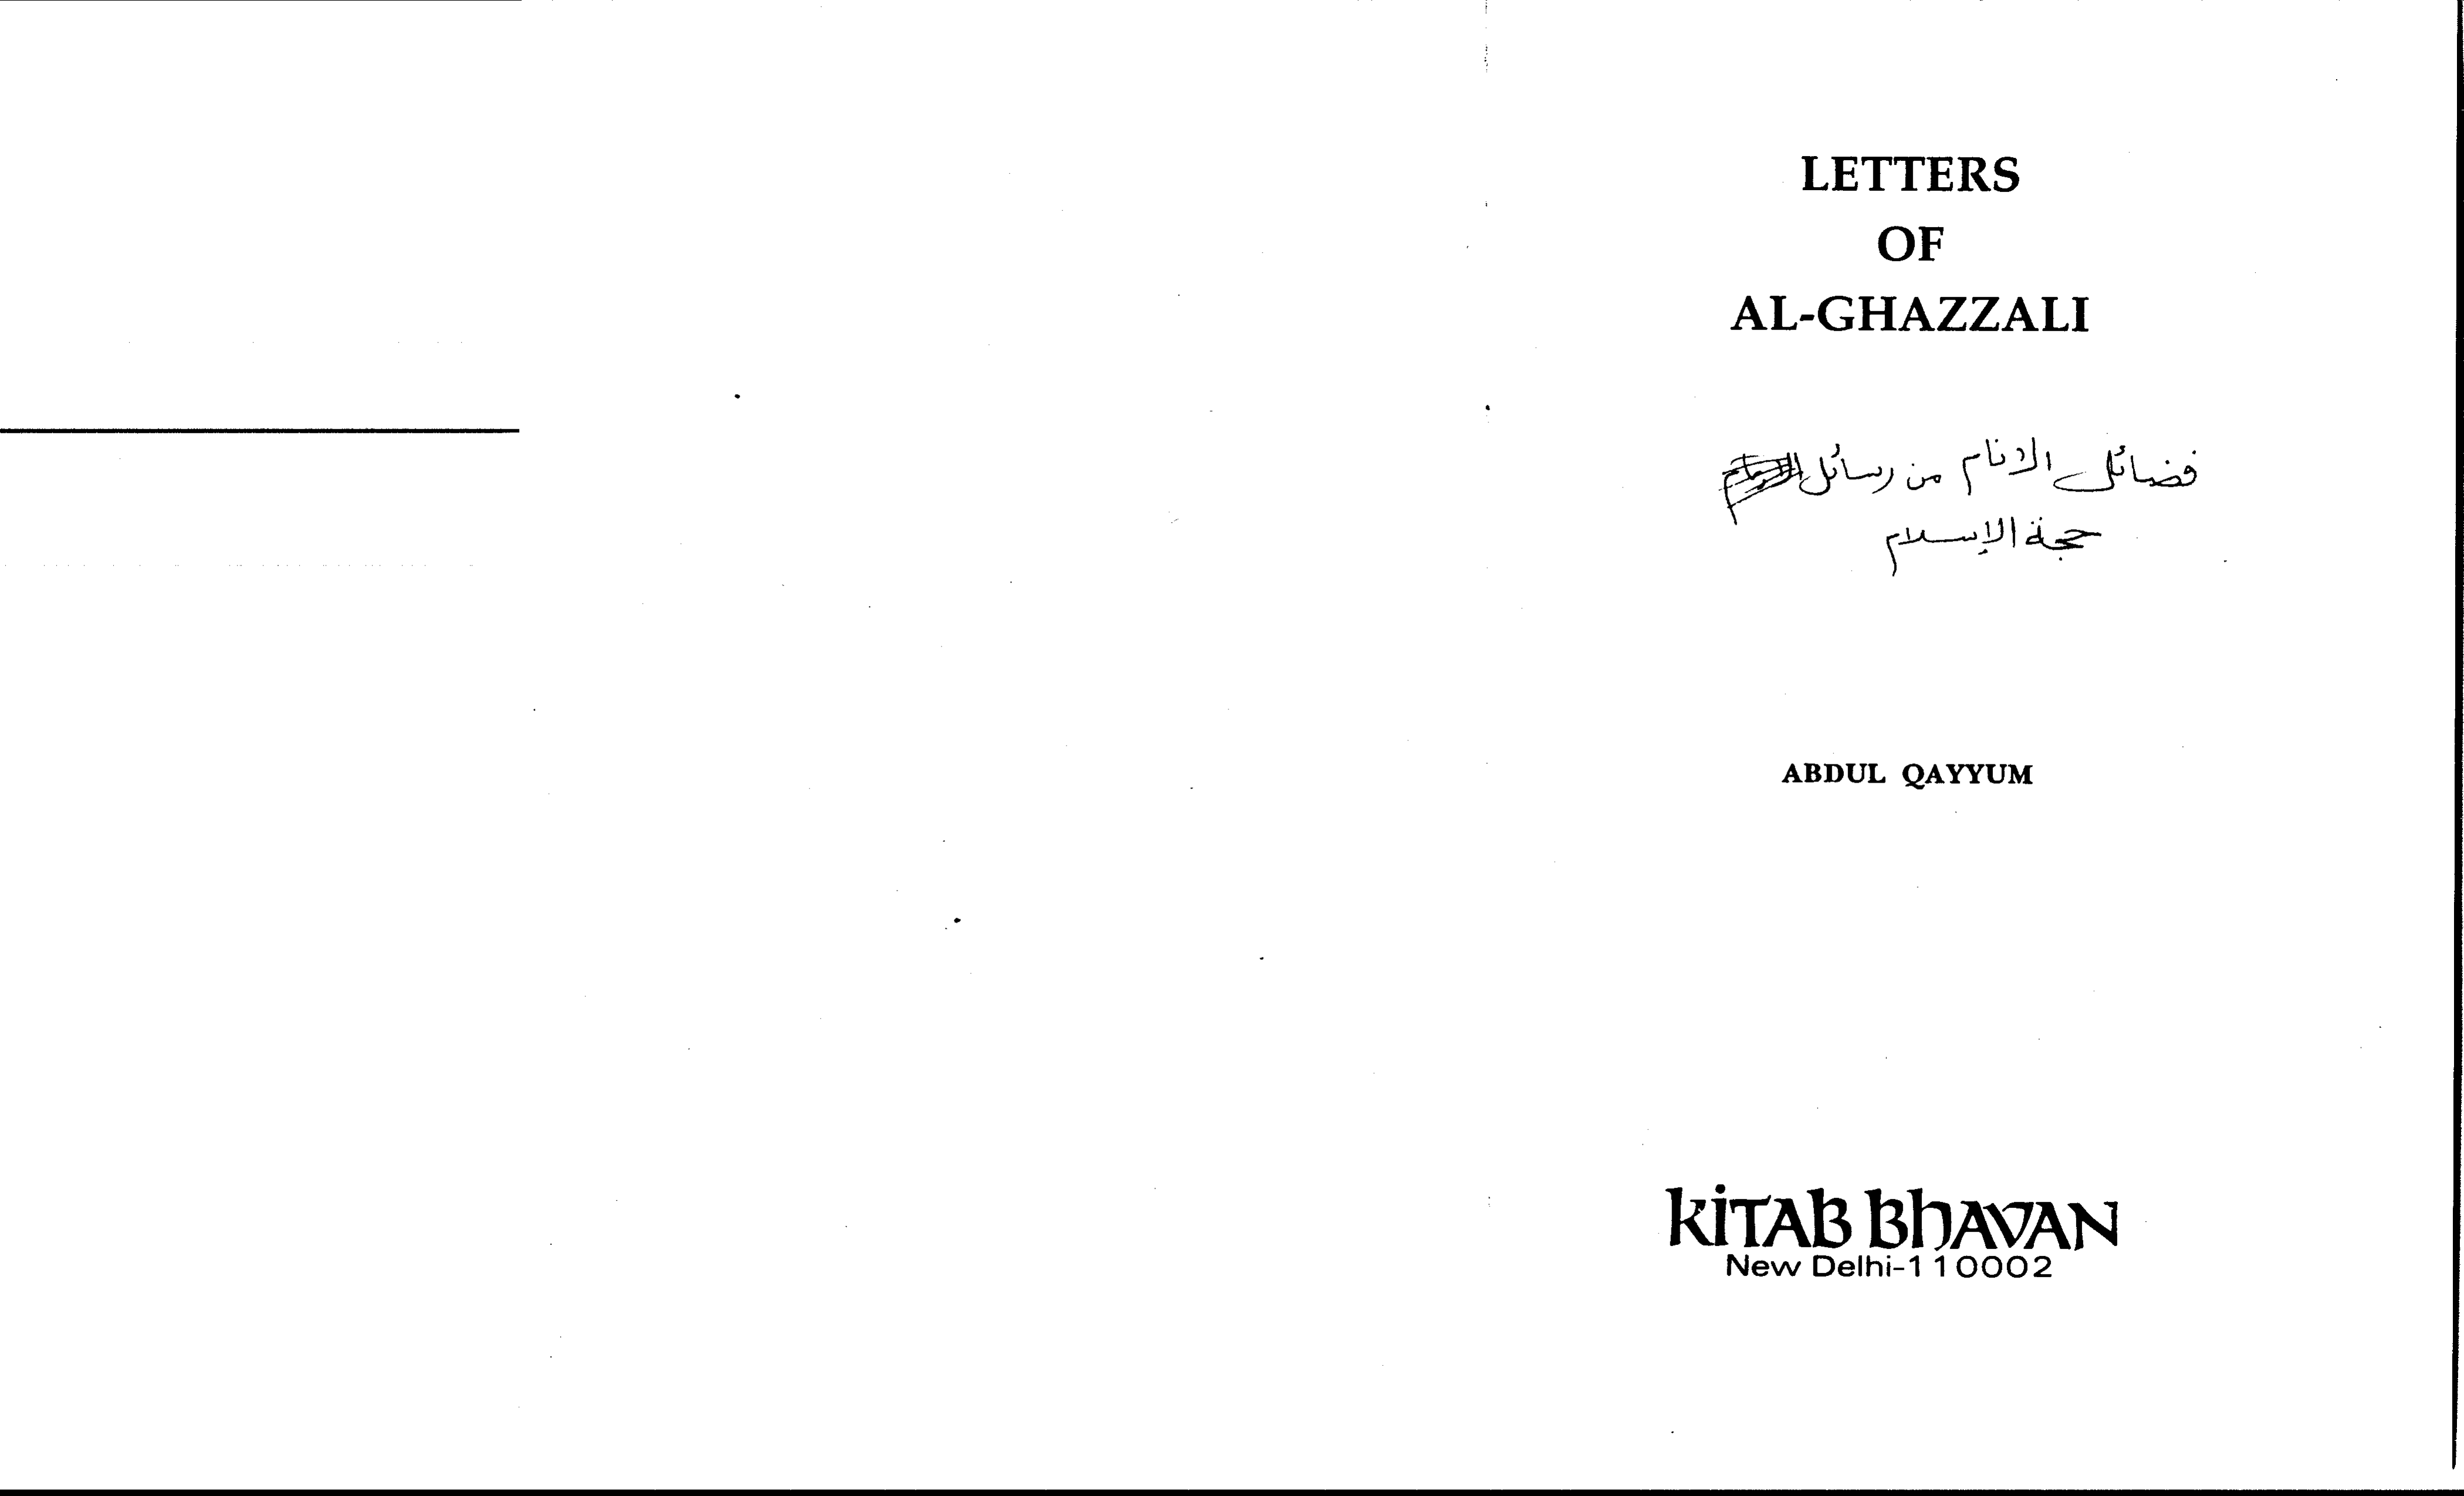 LETTERS
OF
AL-GHAZZALI
فضائل الانام من رسائل
حجة الإسلام
ABDUL QAYYUM
KITAB BHAVAN
New Delhi-110002